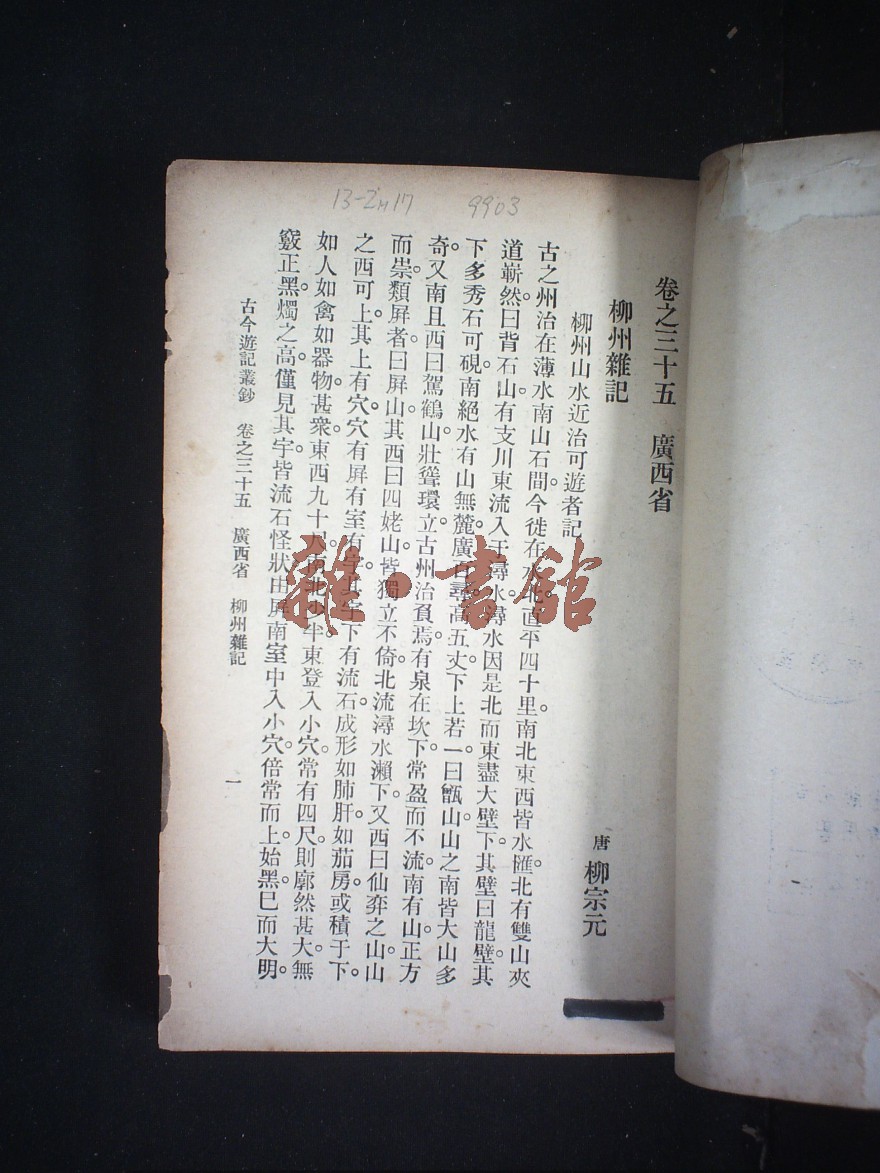 13-2M17 9903
卷之三十五 廣西省
柳州雜記
柳州山水近治可遊者記
唐 柳宗元
古之州治在薄水南山石間今徙在水北。直平四十里。南北東西皆水匯。北有雙山夾
道嶄然。曰背石山有支川東流入于潯水。潯水因是北而東盡大壁下。其壁曰龍壁。其
下多秀石可硯。南絕水有山無麓。廣百尋高五丈。下上若一。曰甑山。山之南皆大山多
奇。又南且西曰駕鶴山。壯聳環立。古州治負焉。有泉在坎下。常盈而不流。南有山正方
而崇。類屏者。曰屏山。其西曰四姥山。皆獨立不倚。北流潯水瀨下。又西曰仙弈之山。山
之西可上。其上有穴。穴有屏有室有宇。其宇下有流石成形。如肺肝。如茄房。或積于下。
如人如禽如器物。甚衆。東西九十尺。南北少半。東登入小穴。常有四尺。則廓然甚大。無
竅正黑。燭之高。僅見其宇。皆流石怪狀。由屏南室中入小穴。倍常而上。始黑。已而大明。
古今遊記叢鈔 卷之三十五 廣西省 柳州雜記 一
雜·書館